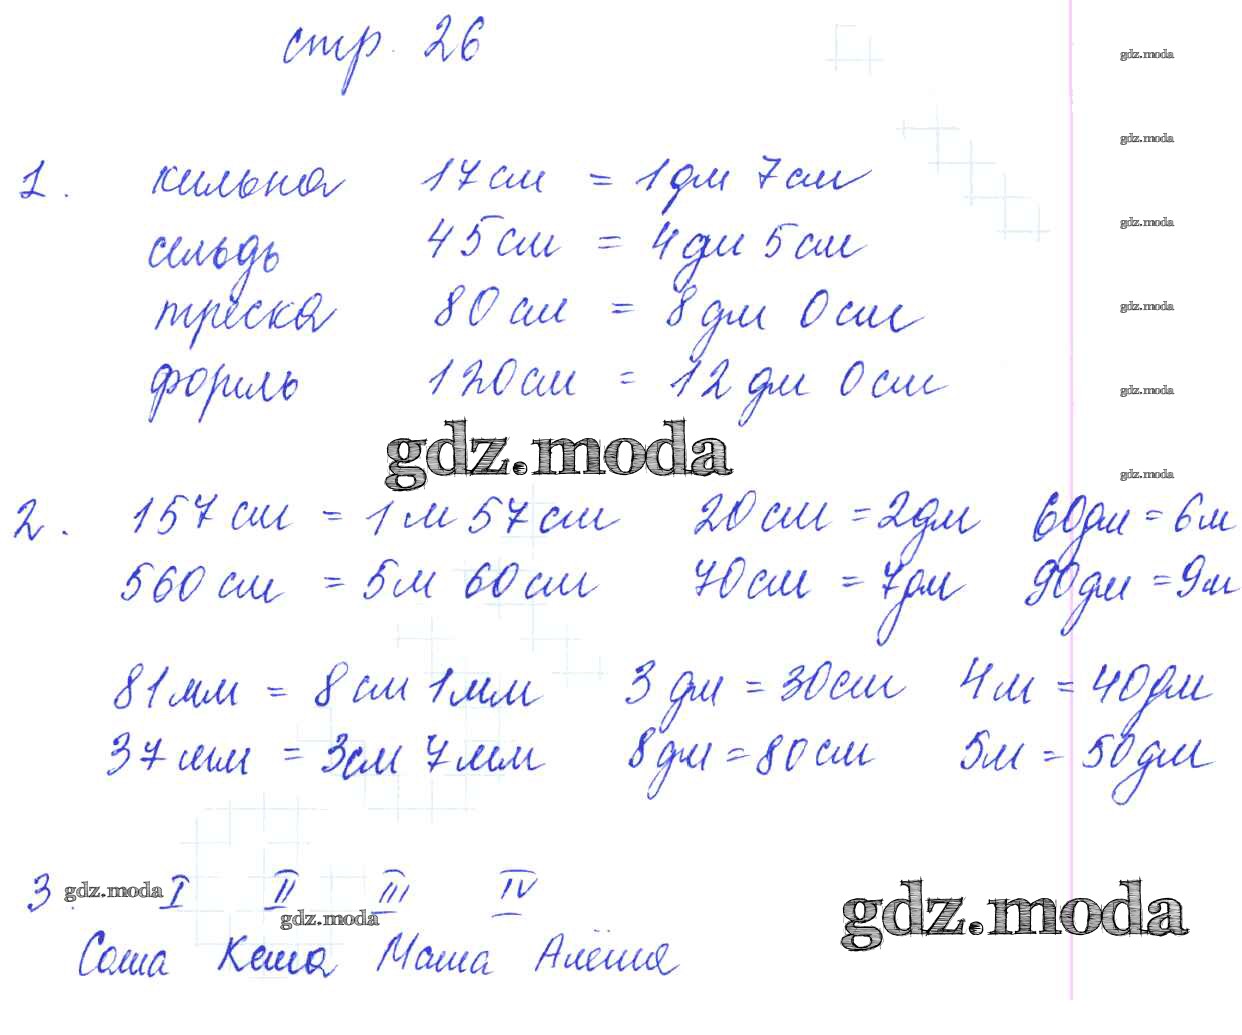 стр. 26
gdz.moda
gdz.moda
1. килька 17 см = 1 дм 7 см
gdz.moda
сельдь 45 см = 4 дм 5 см
треска 80 см = 8 дм 0 см
gdz.moda
форель 120 см = 12 дм 0 см
gdz.moda
gdz.moda
gdz.moda
2. 157 см = 1 м 57 см 20 см = 2 дм 60 дм = 6 м
560 см = 5 м 60 см 70 см = 7 дм 90 дм = 9 м
81 мм = 8 см 1 мм 3 дм = 30 см 4 м = 40 дм
37 мм = 3 см 7 мм 8 дм = 80 см 5 м = 50 дм
3. gdz.moda I II III IV
gdz.moda
gdz.moda
Саша Кеша Маша Алёша